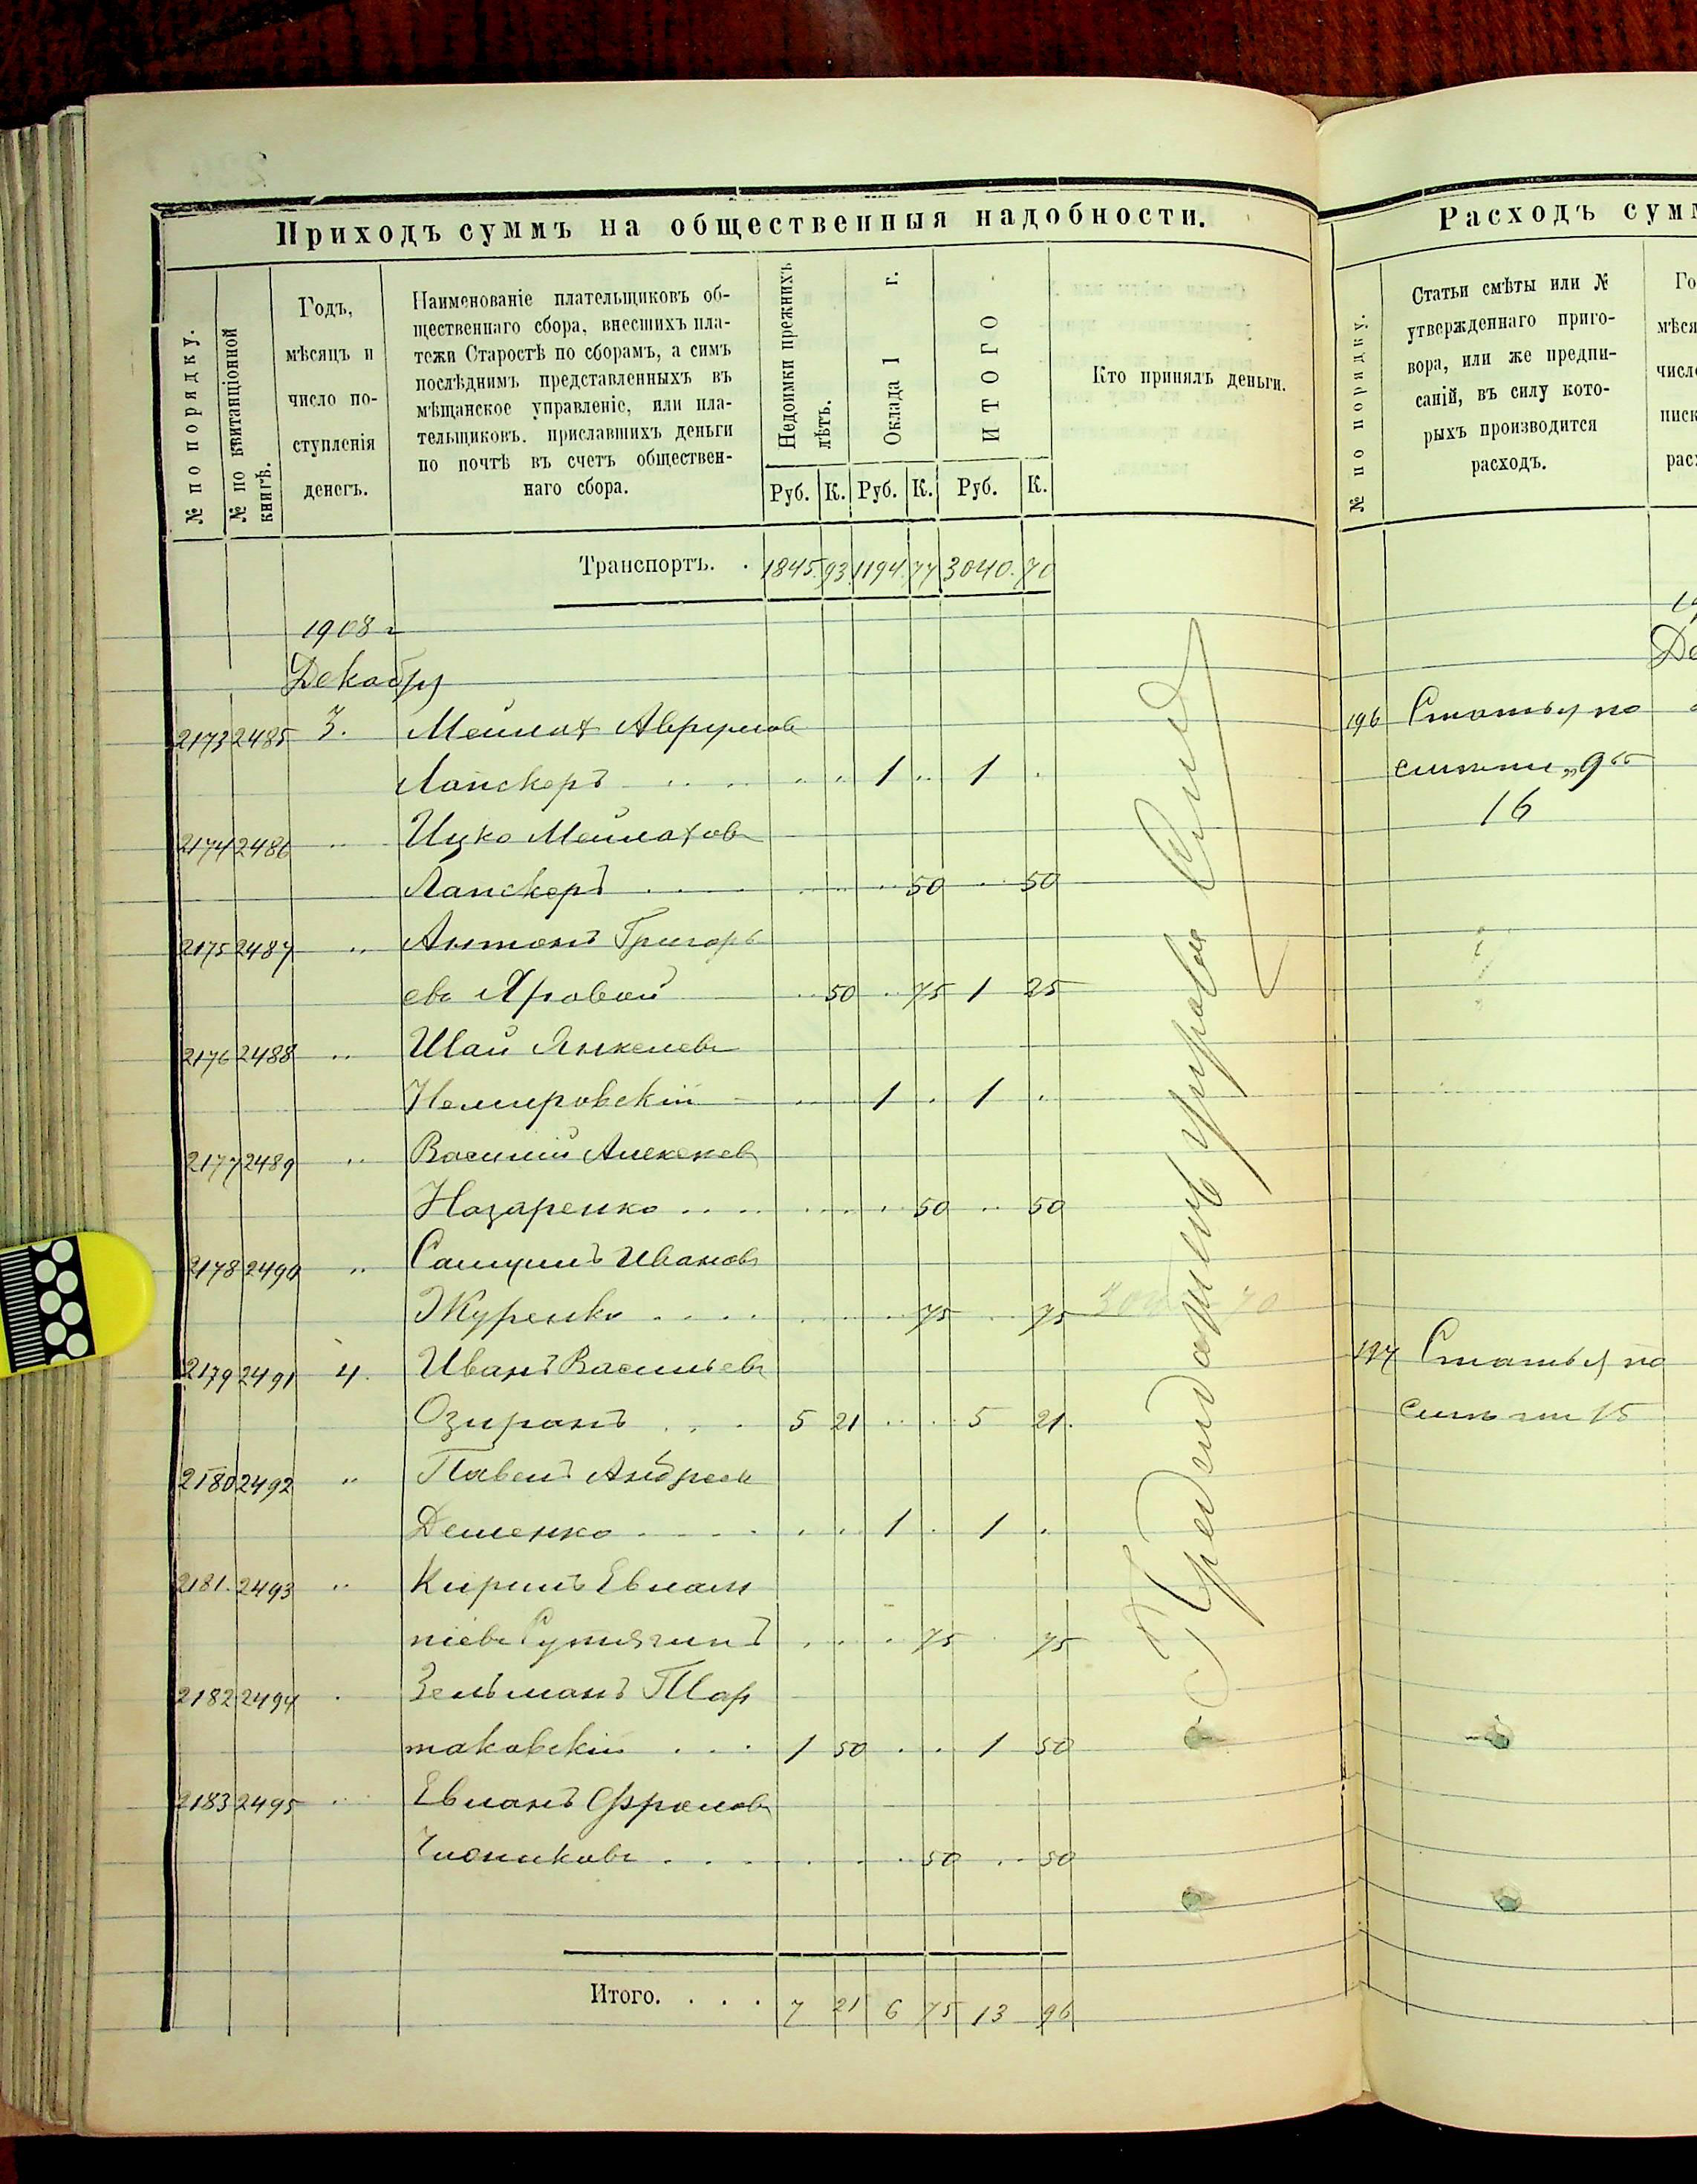 Приходъ суммъ на общественныя надобности.
№ по порядку.
№ по квитанціонной книгѣ.
Годъ,
мѣсяцъ и
число по-
ступленія
денегъ.
Наименованіе плательщиковъ об-
щественнаго сбора, внесшихъ пла-
тежи Старостѣ по сборамъ, а симъ
послѣднимъ представленныхъ въ
мѣщанское управленіе, или пла-
тельщиковъ. приславшихъ деньги
по почтѣ въ счетъ обществен-
наго сбора.
Недоимки прежнихъ
лѣтъ.
Оклада 1 г.
ИТОГО
Кто принялъ деньги.
Руб. К. Руб. К. Руб. К.
Транспортъ. . 1845 93 1194 77 3040. 70
1908 г
Декабря
2173 2485 3. Мейлах Аврумов
Лапскеръ 1 1
2174 2486 " Ицко Мейлахов
Лапскеръ 50 50
2175 2487 " Антонъ Григорь
евъ Яровой 50 75 1 25
2176 2488 " Шая Янкелевъ
Немировскій 1 1
2177 2489 " Василій Алексеев
Назаренко 50 50
2178 2490 " Самуилъ Ивановъ
Журенко 75 75
2179 2491 4. Иванъ Васильевъ
Озиранъ 5 21 5 21.
2180 2492 " Павелъ Андреев
Деменко 1 1
2181. 2493 " Кирилъ Евлам
піевъ 75 75
2182 2494 Зельманъ Пар
таковскій 1 50 1 50
2183 2495 Евланъ Фроловъ
50 50
Итого. . . . 7 21 6 75 13 96
Расходъ сумм
№ по порядку.
Статьи смѣты или №
утвержденнаго приго-
вора, или же предпи-
саній, въ силу кото-
рыхъ производится
расходъ.
Го
мѣся
число
писк
рас
Де
196 Статья по
смѣти „9“
16
197 Статья по
смѣти 15